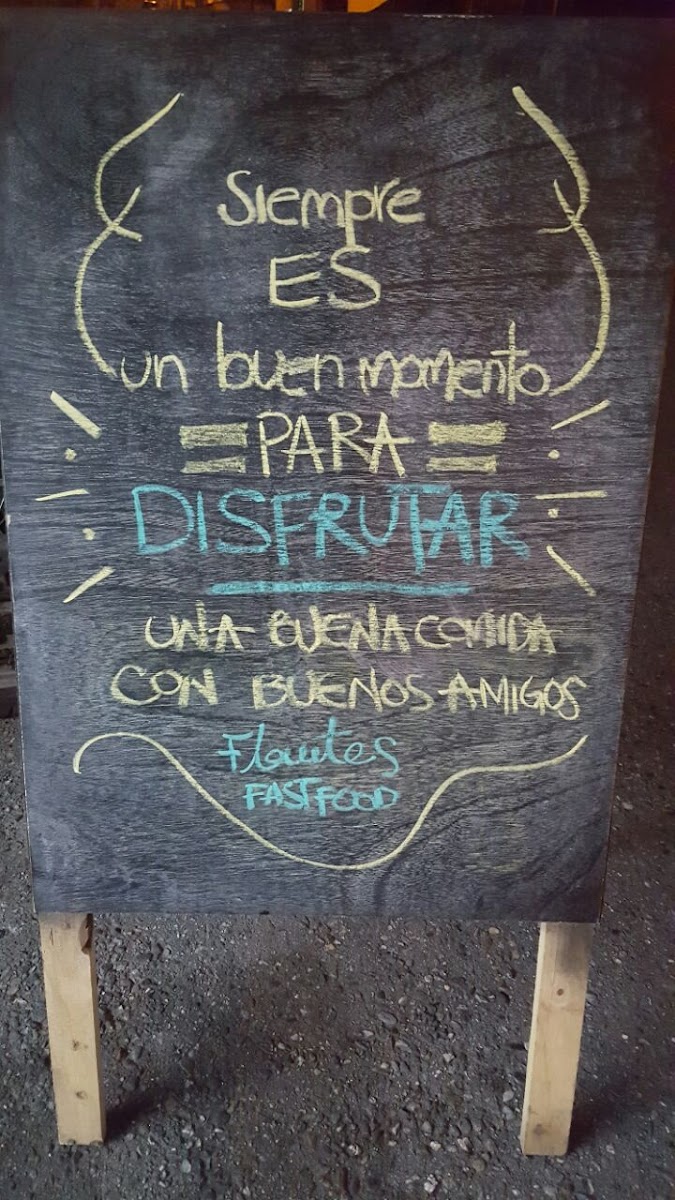 Siempre
ES
un buen momento
PARA
DISFRUTAR
UNA BUENA COMIDA
CON BUENOS AMIGOS
Flautes
FAST FOOD